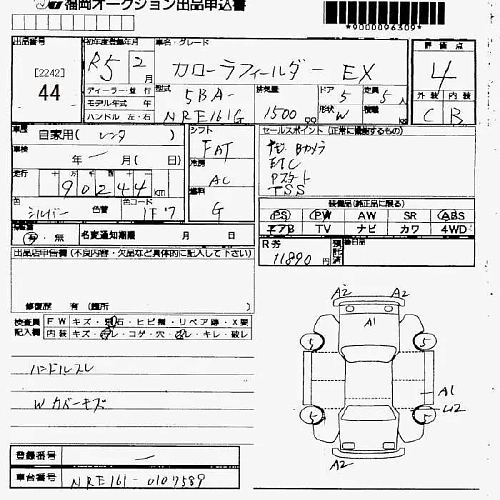 福岡オークション出品申込書
*9000096309*
出品番号
[2242]
44
初年度登録年月
R5 2月
車名・グレード
カローラフィールダー EX
評価点
4
外装 内装
C B
ディーラー・並行
モデル年式 年
ハンドル 左・右
型式
5BA-
NRE161G
排気量
1500 cc
ドア 5
形状 W
定員 5人
積載 kg
車歴
自家用(レンタ)
車検
年 - 月(日)
走行
90244 km
色
シルバー
色替
色コード
1F7
シフト
FAT
冷房
AC
燃料
G
セールスポイント (正常に機能するもの)
ナビ Bカメラ
ETC
Pスタート
TSS
装備品(純正品に限る)
PS PW AW SR ABS
エアB TV ナビ カワ 4WD
有・無
名変通知期限 月 日
R券
11890円
預託済
後日品
出品店申告欄(不良内容・欠品など具体的に記入して下さい)
修復歴 有(箇所 )
検査員記入欄
FW キズ・飛石・ヒビ無・リペア跡・X要
内装 キズ・スレ・コゲ・穴・汚レ・キレ・破レ
ハンドルスレ
Wカバーキズ
A2 A2
A1
5 5
A1
U2
5 5
A2
登録番号
-
車台番号
NRE161-0107589